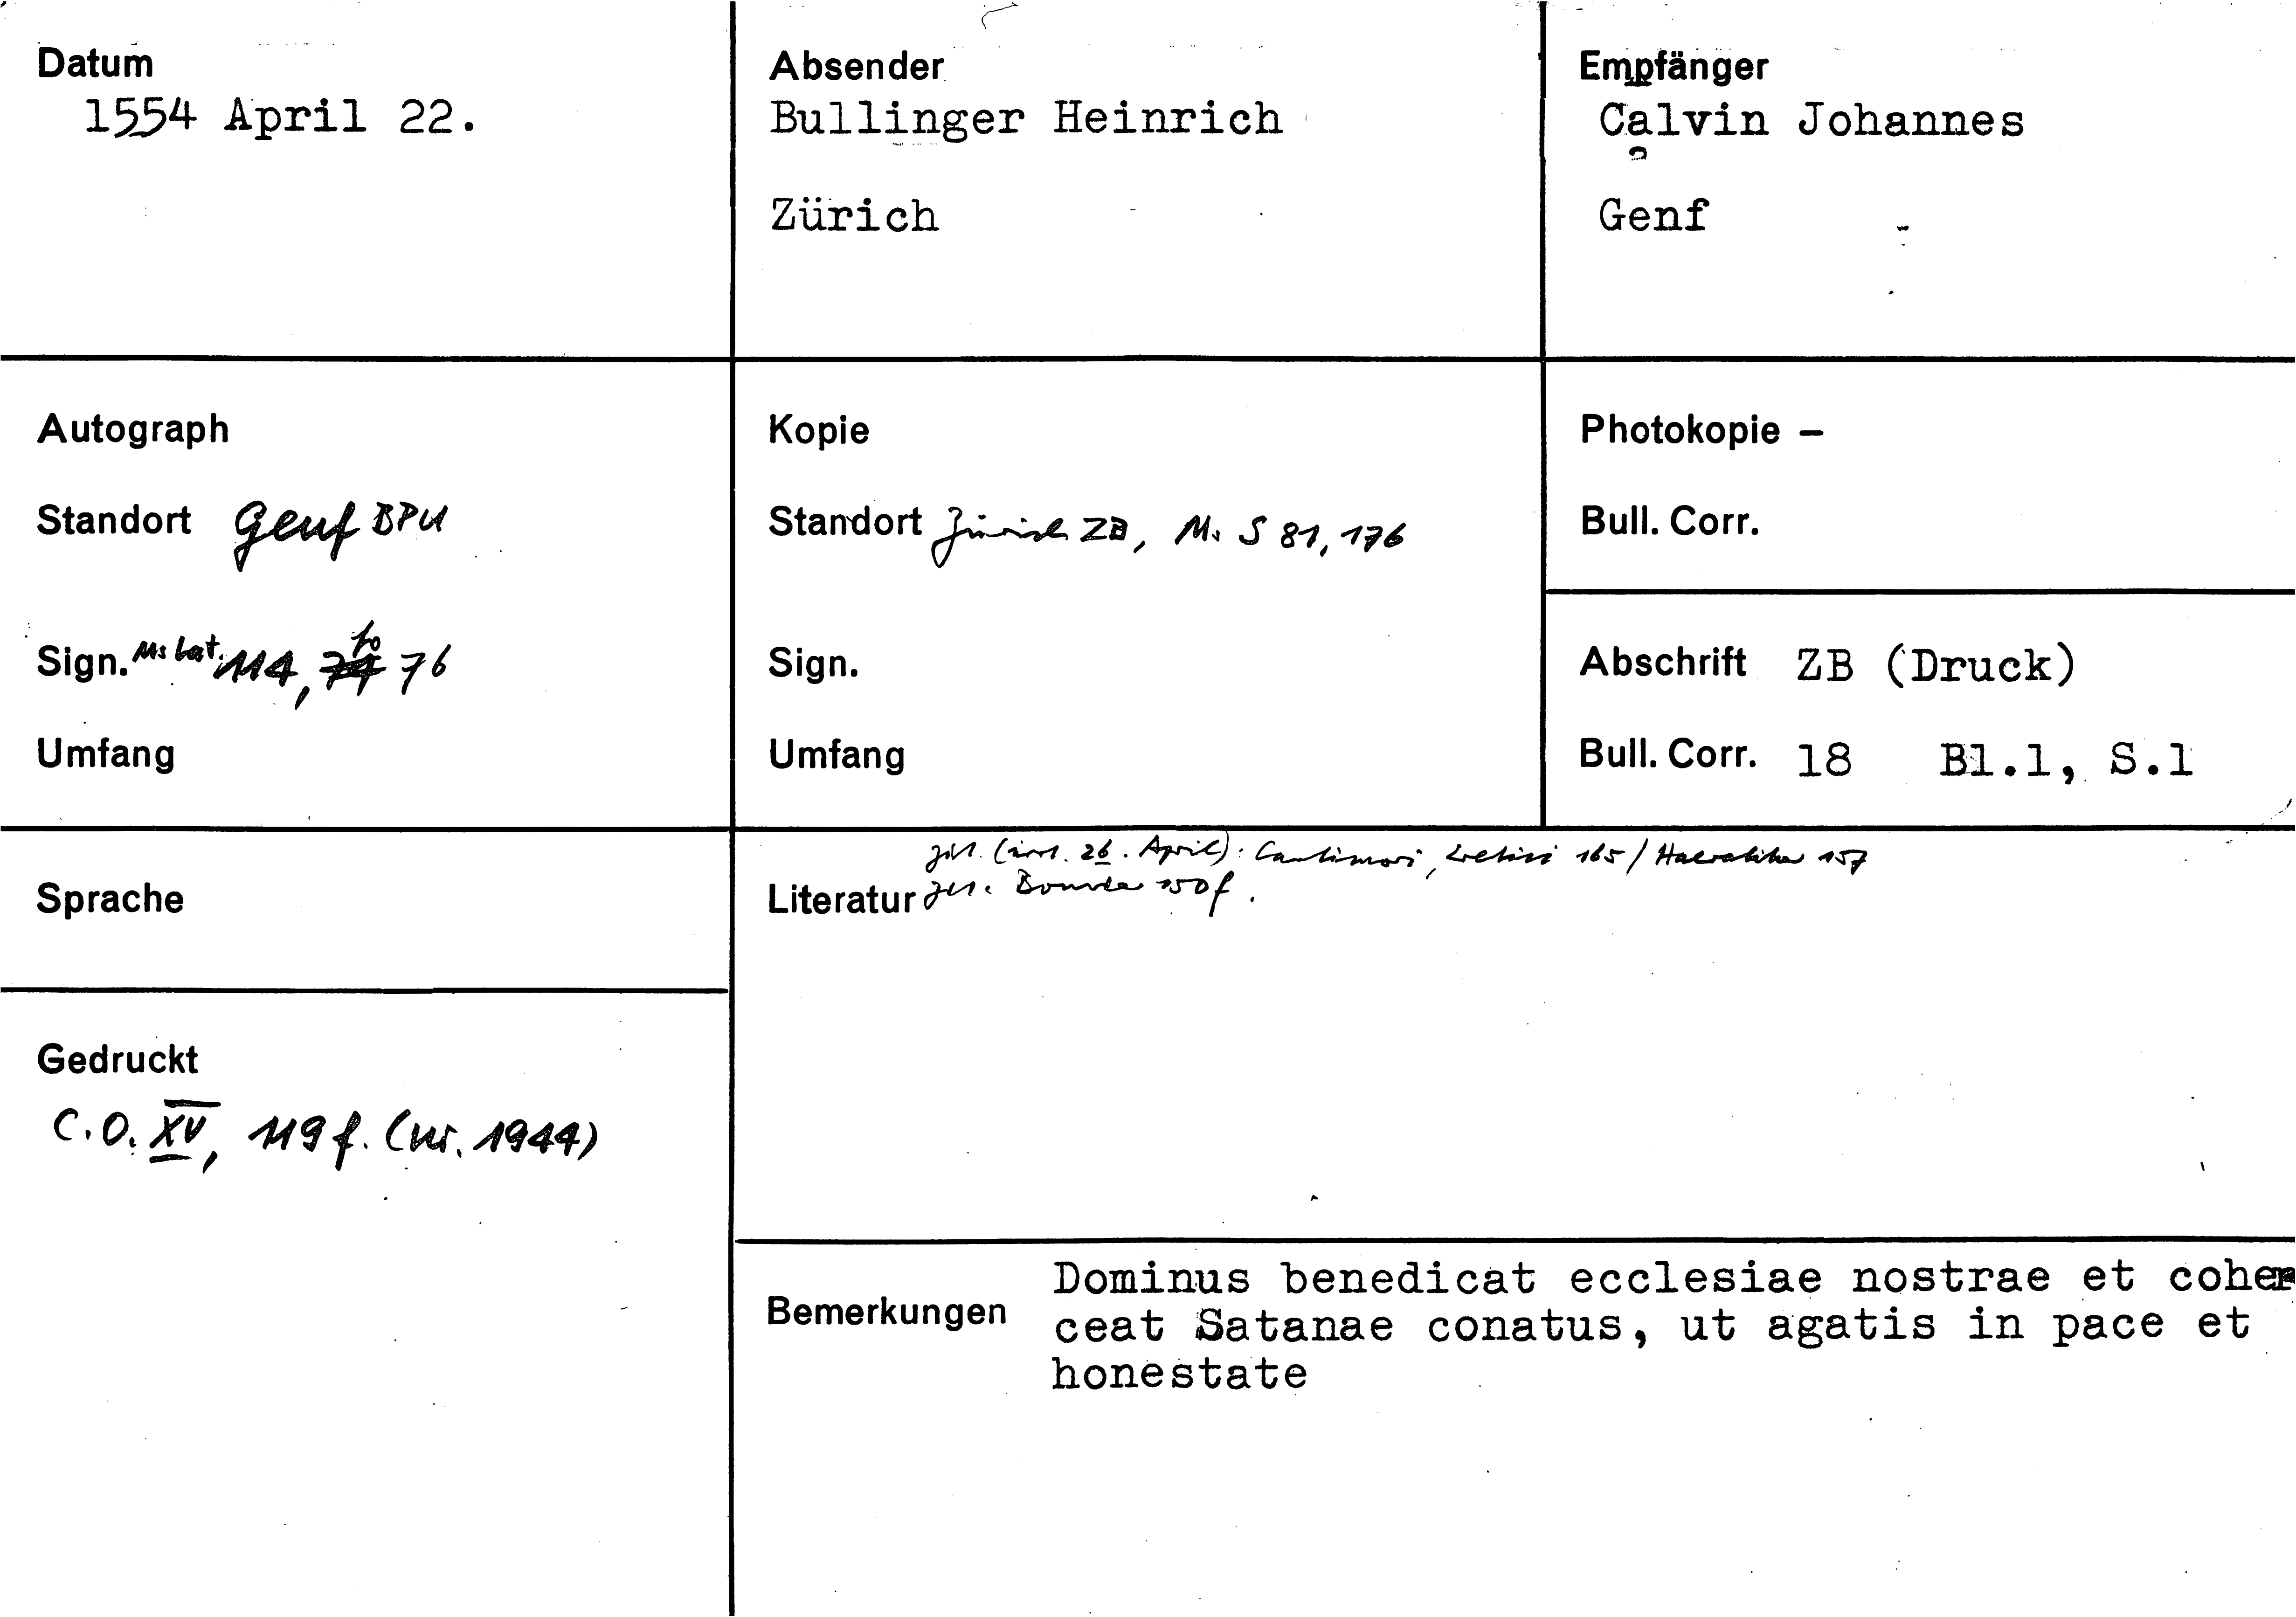 Datum
1554 April 22.
Absender
Bullinger Heinrich
Zürich
Empfänger
Calvin Johannes
Genf
Autograph
Standort Genf BPU
Sign. Ms lat. 114, fo 76
Umfang
Kopie
Standort Zürich ZB, Ms S 81, 176
Sign.
Umfang
Photokopie –
Bull. Corr.
Abschrift ZB (Druck)
Bull. Corr. 18 Bl.1, S.1
Sprache
Gedruckt
C.O. XV, 119 f. (nr. 1944)
zit. (irrt. 26. April): Cantimori, 165 / Haeretiker 157
Literatur 150 f.
Bemerkungen
Dominus benedicat ecclesiae nostrae et coher
ceat Satanae conatus, ut agatis in pace et
honestate